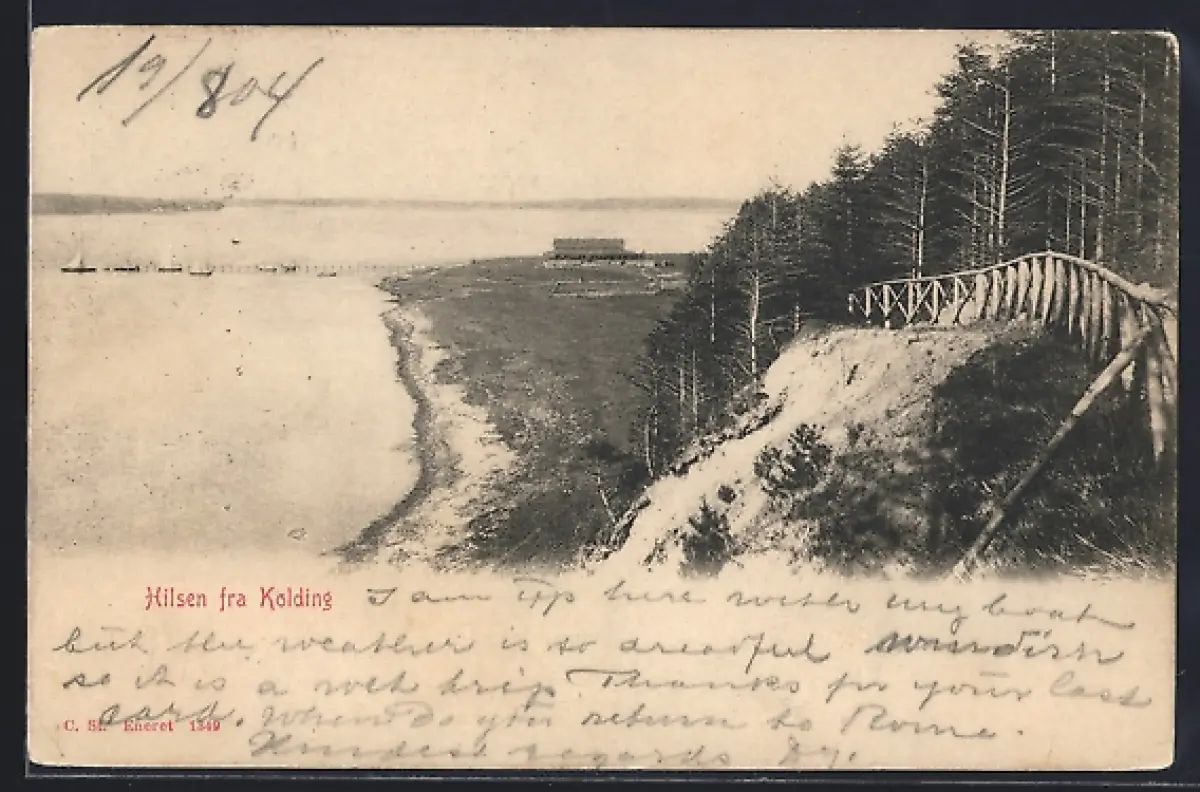 19/804
Hilsen fra Kolding
I am up here with my boat
but the weather is so dreadful
so it is a wet trip Thanks for your last
card. When do you return to Rome.
Kindest regards
C. St. Eneret 1349